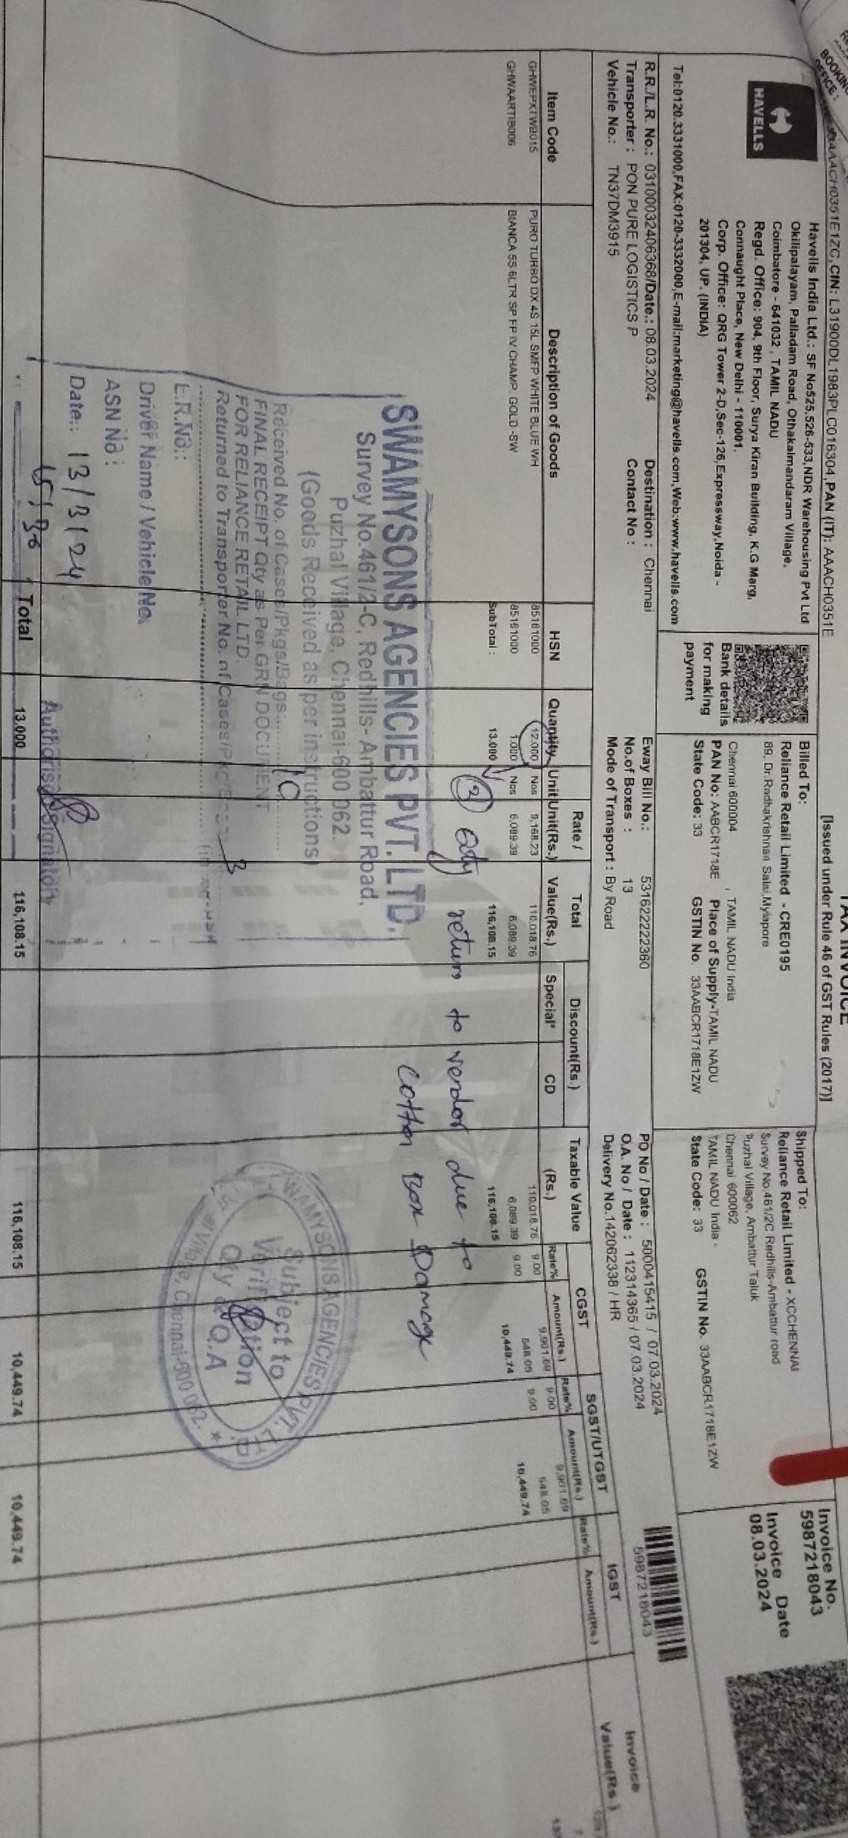 TAX INVOICE
[Issued under Rule 46 of GST Rules (2017)]
CIN: L31900DL1983PLC016304, PAN (IT): AAACH0351E
HAVELLS
Havells India Ltd.: SF No525,526-533,NDR Warehousing Pvt Ltd
Okilipalayam, Palladam Road, Othakalmandaram Village,
Coimbatore - 641032 , TAMIL NADU
Regd. Office: 904, 9th Floor, Surya Kiran Building, K.G Marg,
Connaught Place, New Delhi - 110001.
Corp. Office: QRG Tower 2-D,Sec-126,Expressway,Noida -
201304, UP. (INDIA)
Tel:0120.3331000,FAX:0120-3332000,E-mail:marketing@havells.com,Web:www.havells.com
Bank details
for making
payment
Billed To:
Reliance Retail Limited - CRE0195
89, Dr.Radhakrishnan Salai,Mylapore
Chennai 600004 , TAMIL NADU India
PAN No: AABCR1718E Place of Supply-TAMIL NADU
State Code: 33 GSTIN No. 33AABCR1718E1ZW
Shipped To:
Reliance Retail Limited - XCCHENNAI
Survey No.461/2C Redhills-Ambattur road
Puzhal Village, Ambattur Taluk
Chennai 600062
TAMIL NADU India -
State Code: 33 GSTIN No. 33AABCR1718E1ZW
Invoice No.
5987218043
Invoice Date
08.03.2024
R.R./L.R. No.: 03100032406368/Date.: 08.03.2024 Destination : Chennai
Transporter : PON PURE LOGISTICS P Contact No :
Vehicle No.: TN37DM3915
Eway Bill No.: 531622222360
No.of Boxes : 13
Mode of Transport : By Road
PO No / Date : 5000415415 / 07.03.2024
O.A. No / Date : 112314365 / 07.03.2024
Delivery No.142062338 / HR
5987218043
Item Code Description of Goods HSN Quantity Unit Rate / Unit(Rs.) Total Value(Rs.) Discount(Rs.) Special* CD Taxable Value (Rs.) CGST Rate% Amount(Rs.) SGST/UTGST Rate% Amount(Rs.) IGST Rate% Amount(Rs.) Invoice Value(Rs.)
GHWEPXTWB015 PURO TURBO DX 4S 15L SMFP WHITE BLUE WH 85161000 12.000 Nos 9,168.23 110,018.76 110,018.76 9.00 9,901.69 9.00 9,901.69
GHWAARTIB006 BIANCA 5S 6LTR SP FP IV CHAMP. GOLD -SW 85161000 1.000 Nos 6,089.39 6,089.39 6,089.39 9.00 548.05 9.00 548.05
SubTotal : 13.000 116,108.15 116,108.15 10,449.74 10,449.74
③ Qty return to vendor due to
Cotton Box Damage
SWAMYSONS AGENCIES PVT. LTD.
Survey No.461/2-C, Redhills- Ambattur Road,
Puzhal Village, Chennai-600 062.
(Goods Received as per instructions)
Received No. of Cases/Pkgs/Bags 10
FINAL RECEIPT Qty as Per GRN DOCUMENT
FOR RELIANCE RETAIL LTD
Returned to Transporter No. of Cases 3
L.R.No.:
Driver Name / Vehicle No.
ASN No :
Date: 13/3/24
Authorised Signatory
SWAMYSONS AGENCIES PVT. LTD.
Subject to
Verification
Qty & Q.A
Chennai-600 062.
Total 13.000 116,108.15 116,108.15 10,449.74 10,449.74